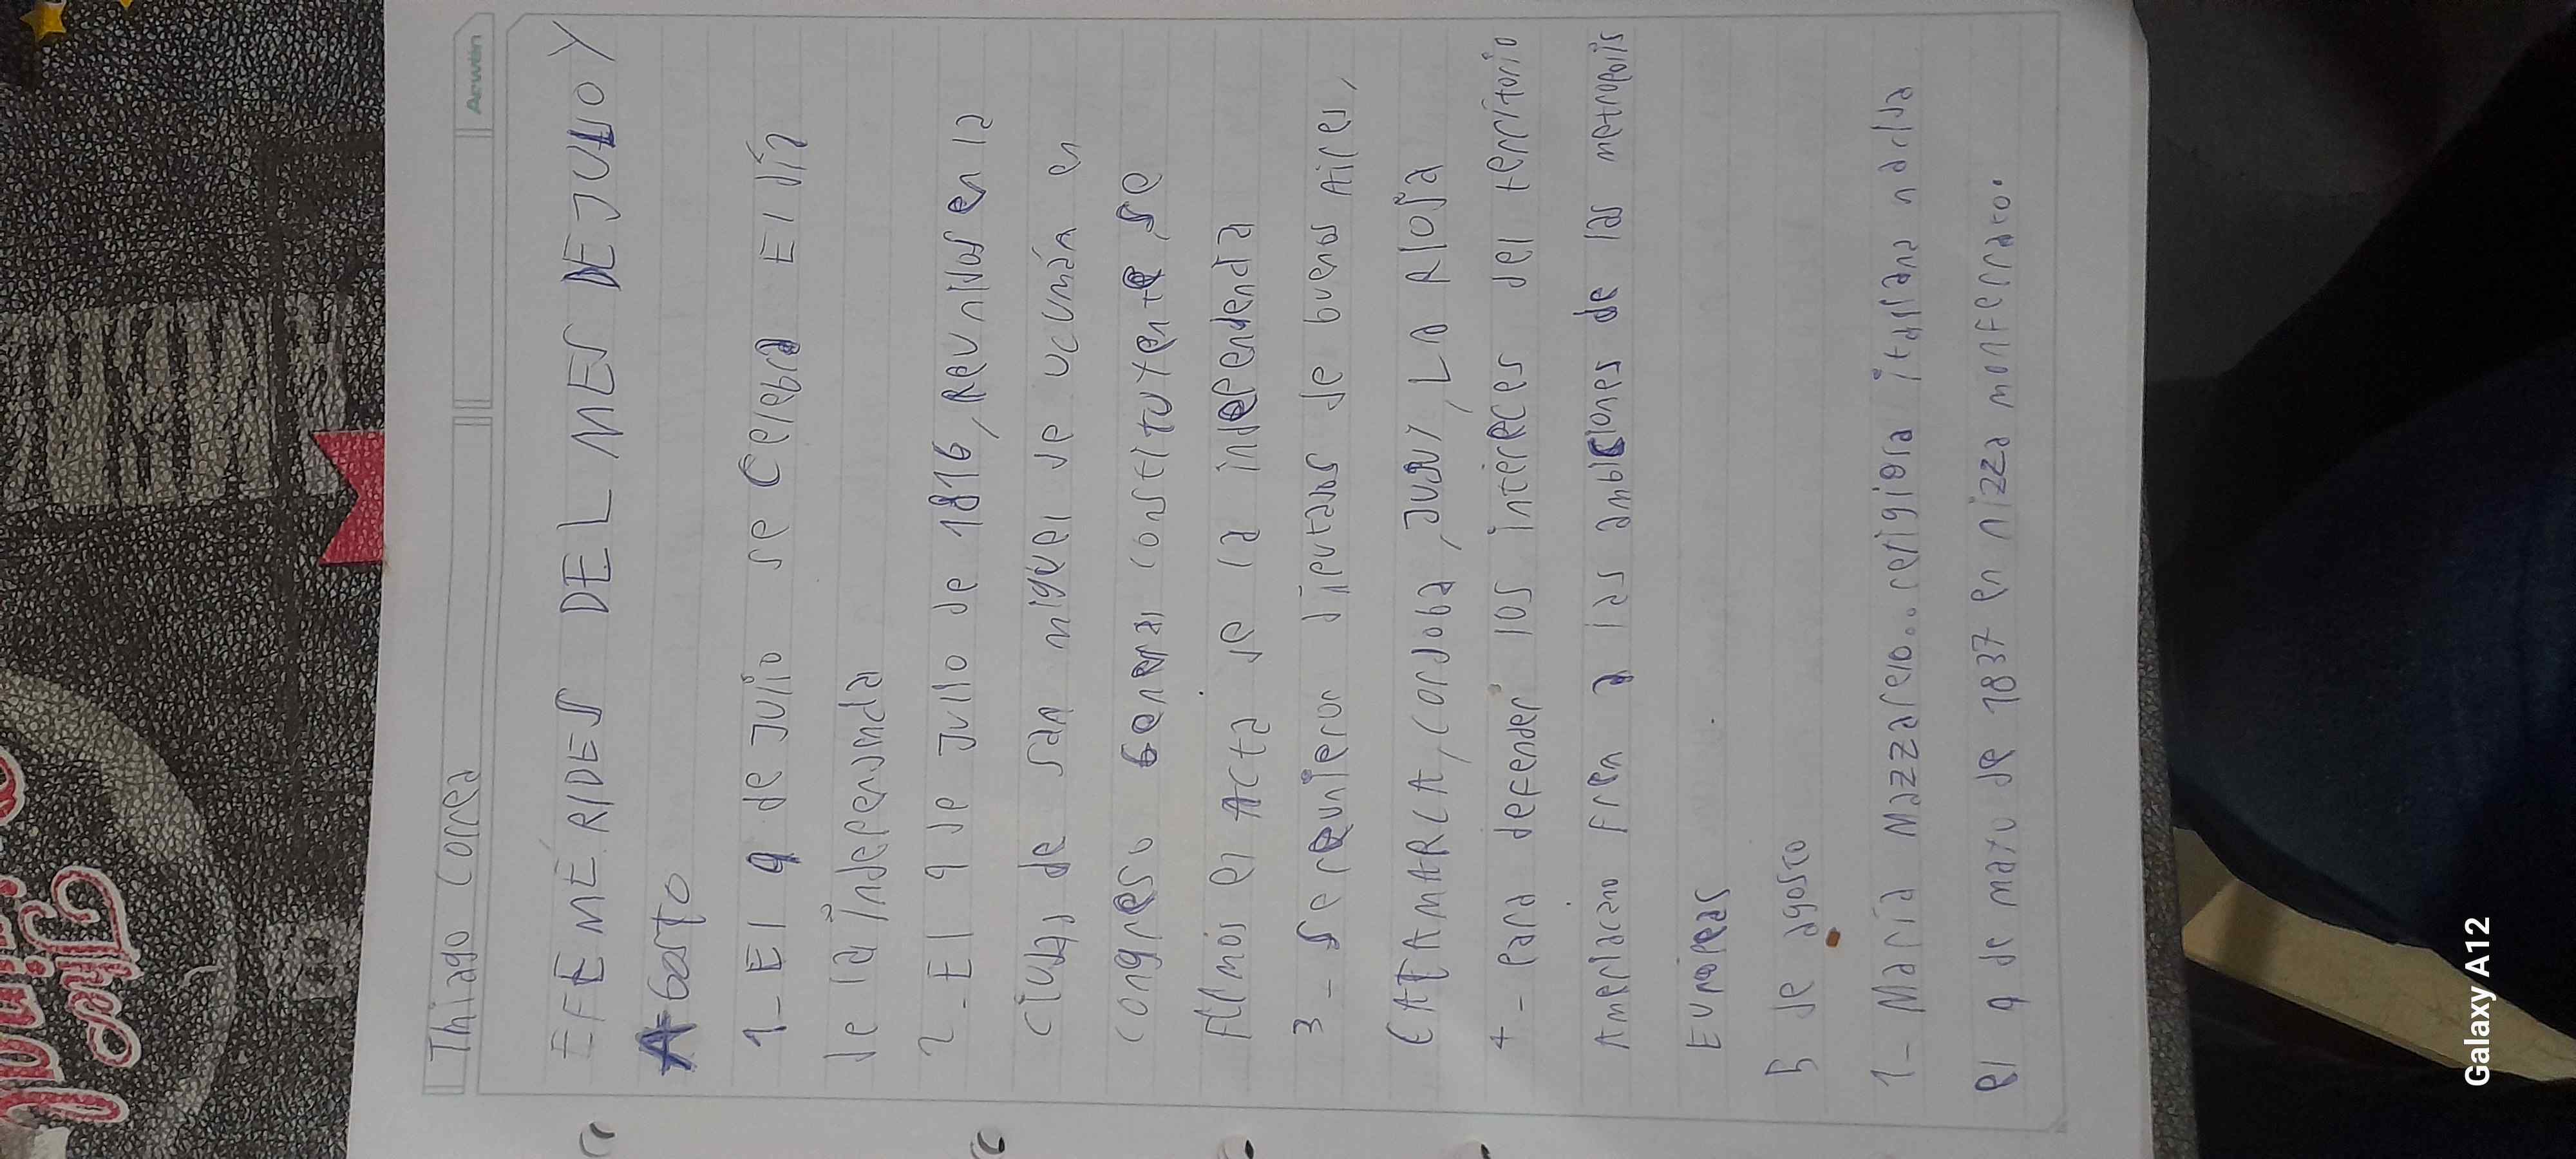 Thiago Correa
Arwen
EFEMÉRIDES DEL MES DE JULIO Y
AGOSTO
1- El 9 de Julio se Celebra El día
de la independencia
2- El 9 de Julio de 1816, Reunidos en la
ciudad de san miguel de ucumán en
congreso General constituyente, se
el Acta de la independencia
3- Se reunieron diputados de buenos Aires,
CATAMARCA, cordoba, Jujuy, La Rioja
4- Para defender los intereces del territorio
Americano Fren a las ambiciones de las metropolis
Europeas
5 de agosto
1- María Mazzarello.. religiosa italiana nacida
el 9 de mayo de 1837 en nizza monferrato.
Galaxy A12